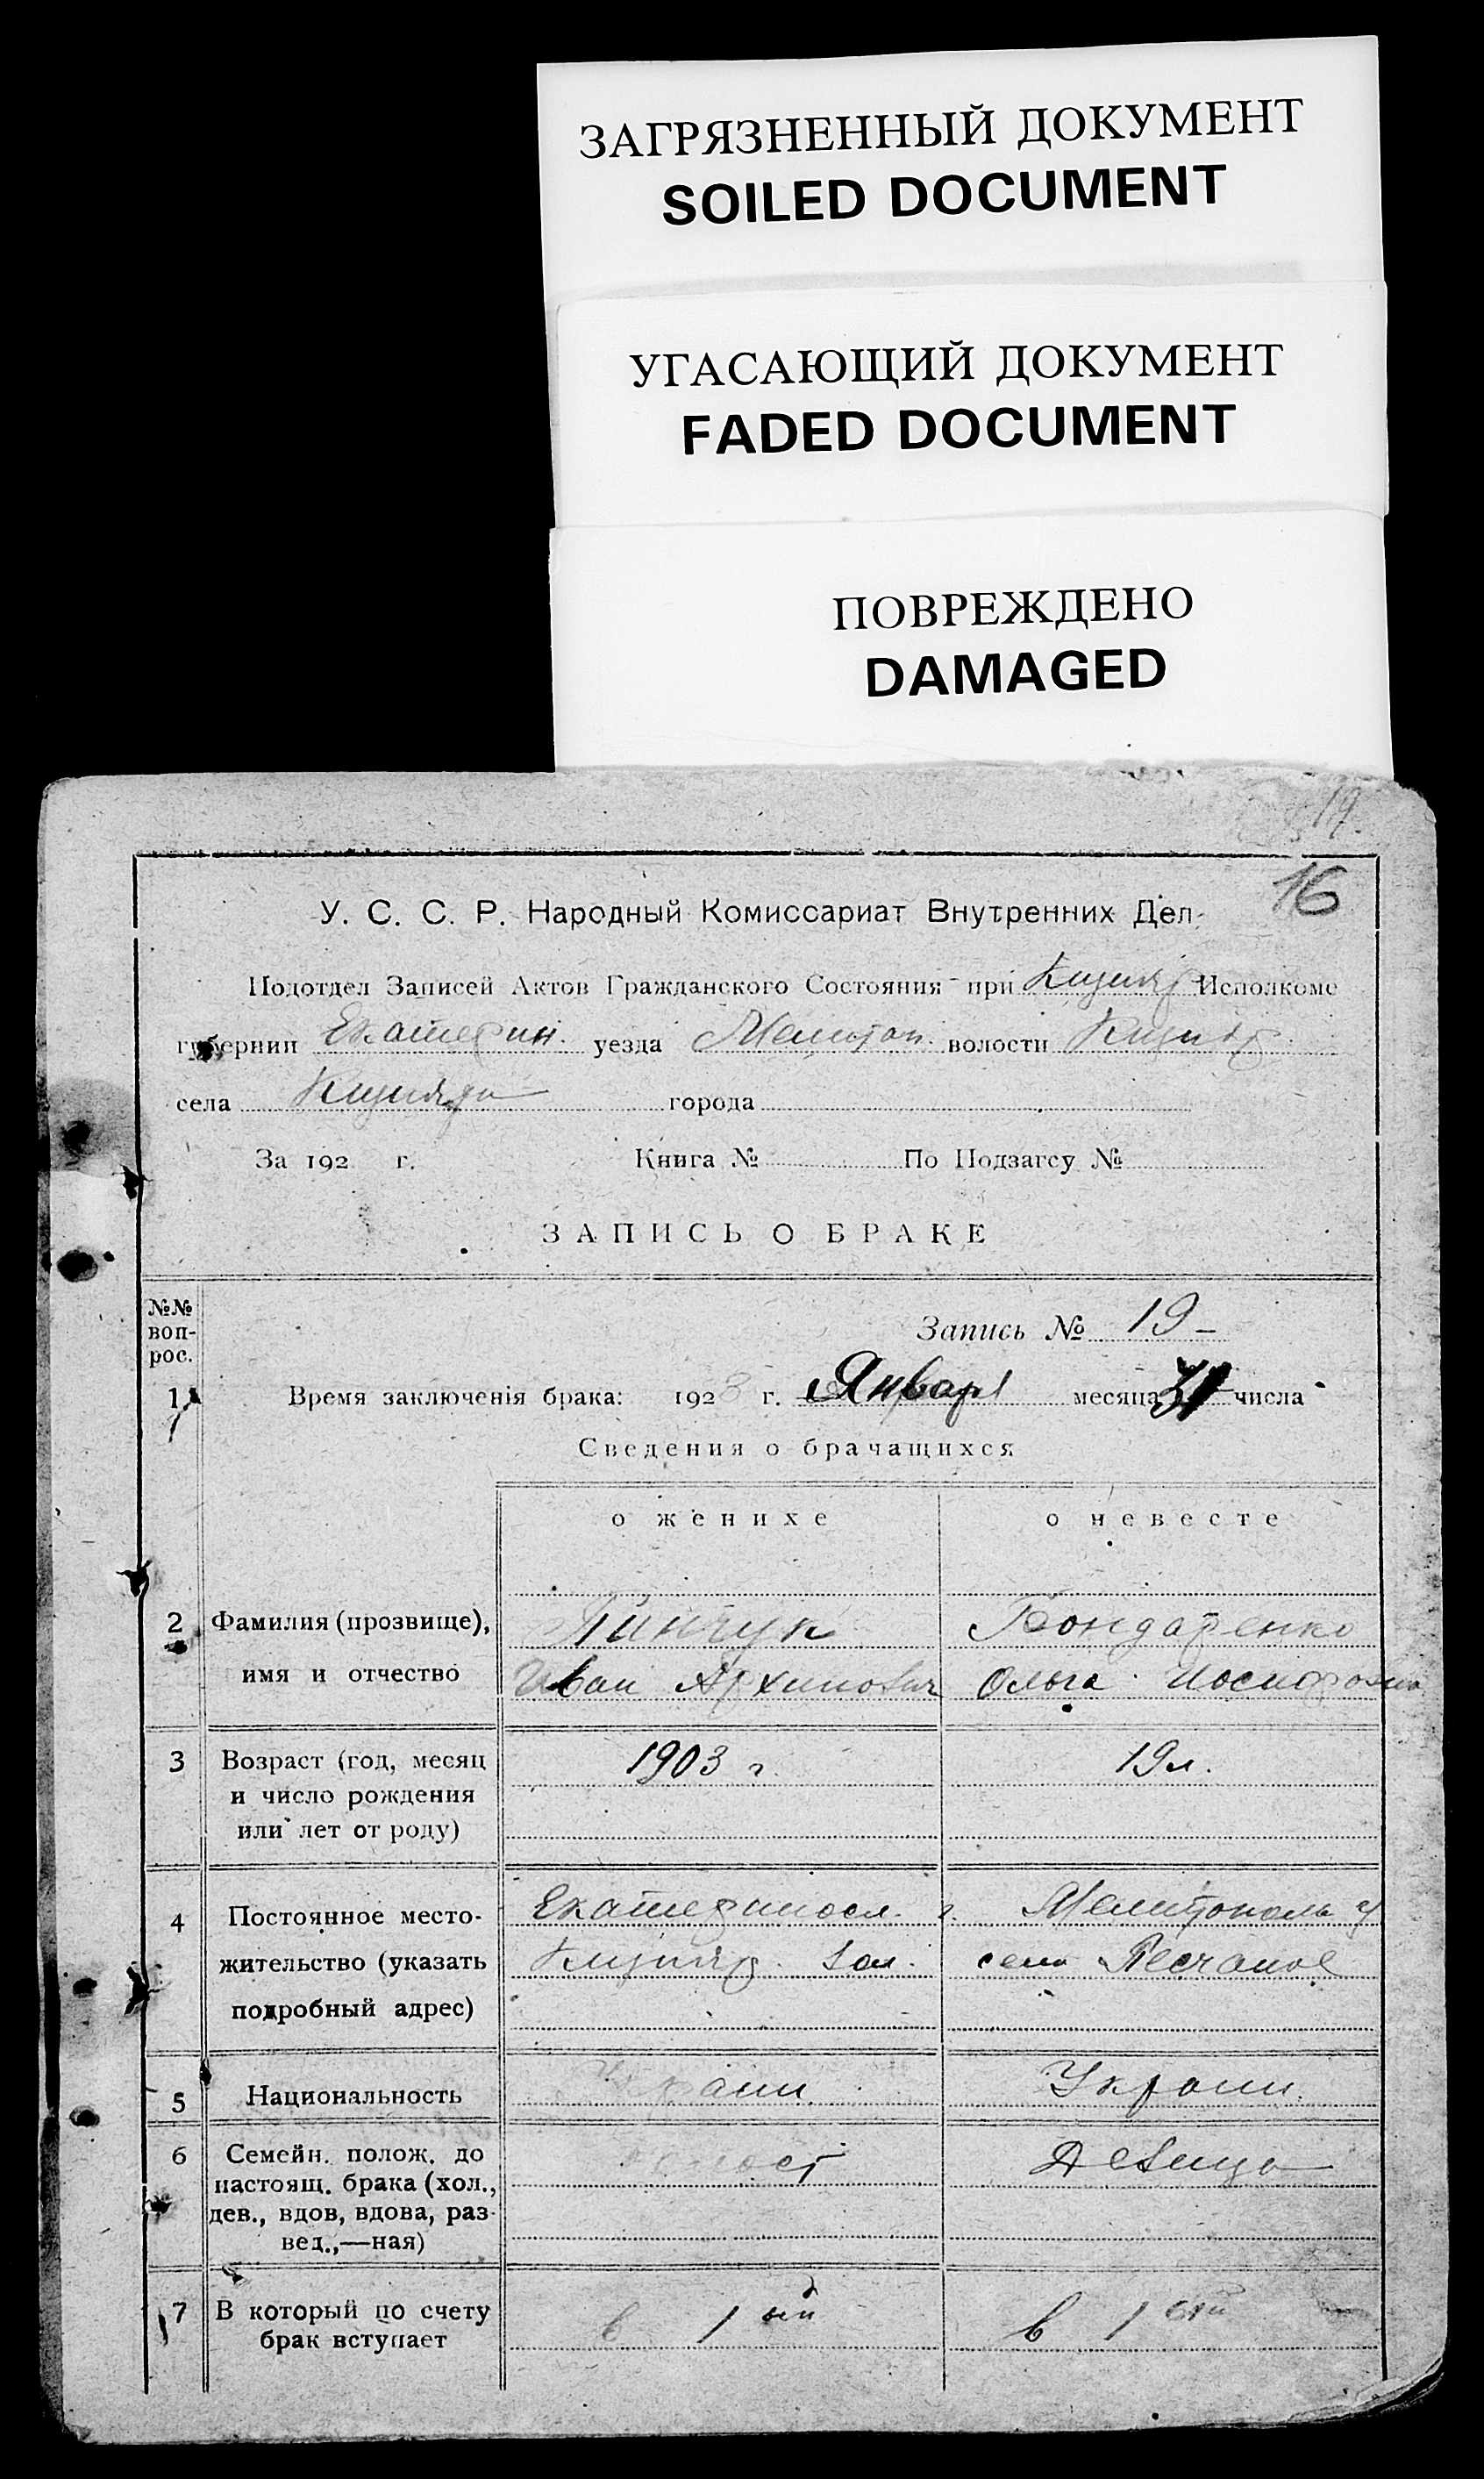 ЗАГРЯЗНЕННЫЙ ДОКУМЕНТ
SOILED DOCUMENT
УГАСАЮЩИЙ ДОКУМЕНТ
FADED DOCUMENT
ПОВРЕЖДЕНО
DAMAGED
19.
16
У. С. С. Р. Народный Комиссариат Внутренних Дел
Подотдел Записей Актов Гражданского Состояния при Кизияр Исполкоме
губернии Екатерин. уезда Мелитоп. волости Кизияр
села Кизияра города
За 192 г. Книга № По Подзагсу №
ЗАПИСЬ О БРАКЕ
№№ воп- рос.
Запись № 19
1 Время заключенія брака: 1923 г. Января месяца 31 числа
Сведения о брачащихся
о женихе о невесте
2 Фамилия (прозвище), Пинчук Бондаренко
имя и отчество Иван Архипович Ольга Иосифовна
3 Возраст (год, месяц 1903 г. 19 л.
и число рождения
или лет от роду)
4 Постоянное место- Екатериносл. г. Мелитополь у
жительство (указать Кизияр. вол. село Песчаное
подробный адрес)
5 Национальность Украин. Украин.
6 Семейн. полож. до холост Девица
настоящ. брака (хол.,
дев., вдов, вдова, раз-
вед.,—ная)
7 В который по счету в 1 ый в 1 ый
брак вступает